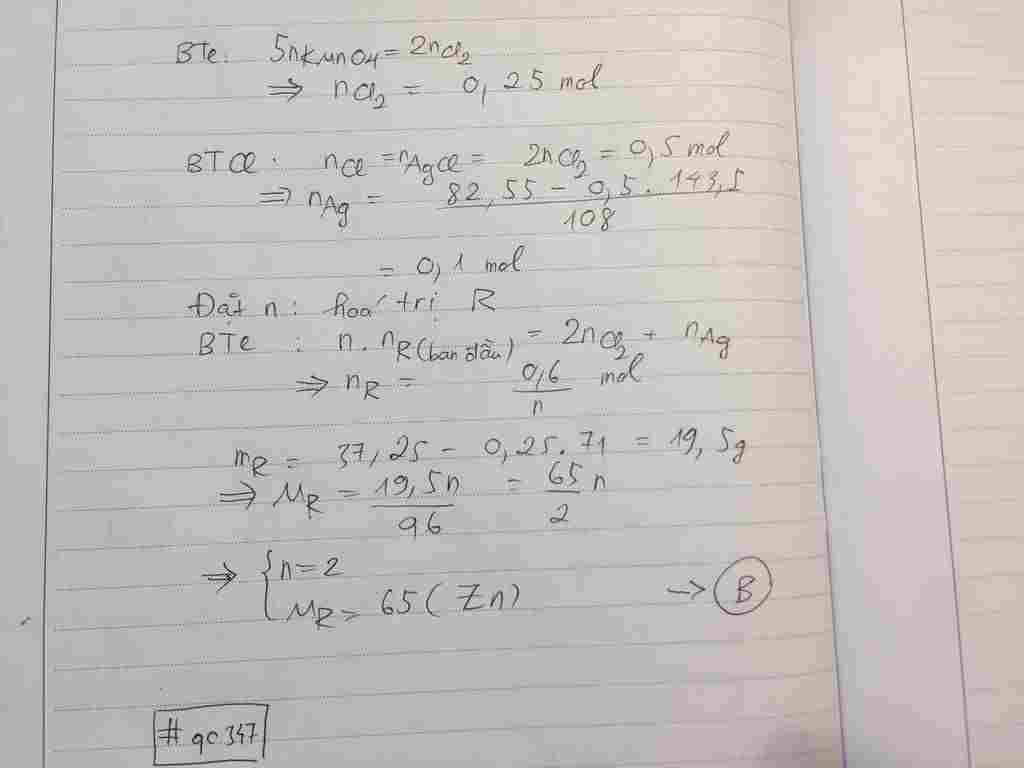 BTe: 5nKMnO4 = 2nCl2
⇒ nCl2 = 0,25 mol
BTCl: nCl = nAgCl = 2nCl2 = 0,5 mol
⇒ nAg = (82,55 - 0,5.143,5)/108
= 0,1 mol
Đặt n: hoá trị R
BTe : n.nR(ban đầu) = 2nCl2 + nAg
⇒ nR = 0,6/n mol
mR = 37,25 - 0,25.71 = 19,5g
⇒ MR = 19,5n/0,6 = 65/2 n
⇒ { n=2
MR = 65 (Zn) → B
#qc347